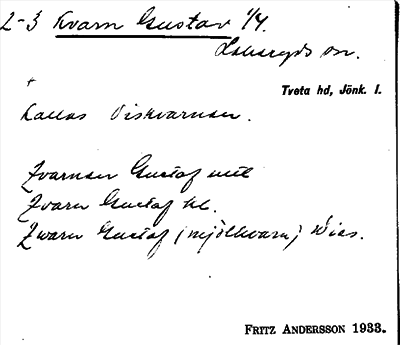 2-3 Kvarn Gustav 1/4.
Lekeryds sn.
Tveta hd, Jönk. l.
+
Kallas Viskvarnen.
Qvarnen Gustaf mtl
Qvarn Gustaf kl.
Qwarn Gustaf (mjölkvarn) Wies.
FRITZ ANDERSSON 1933.